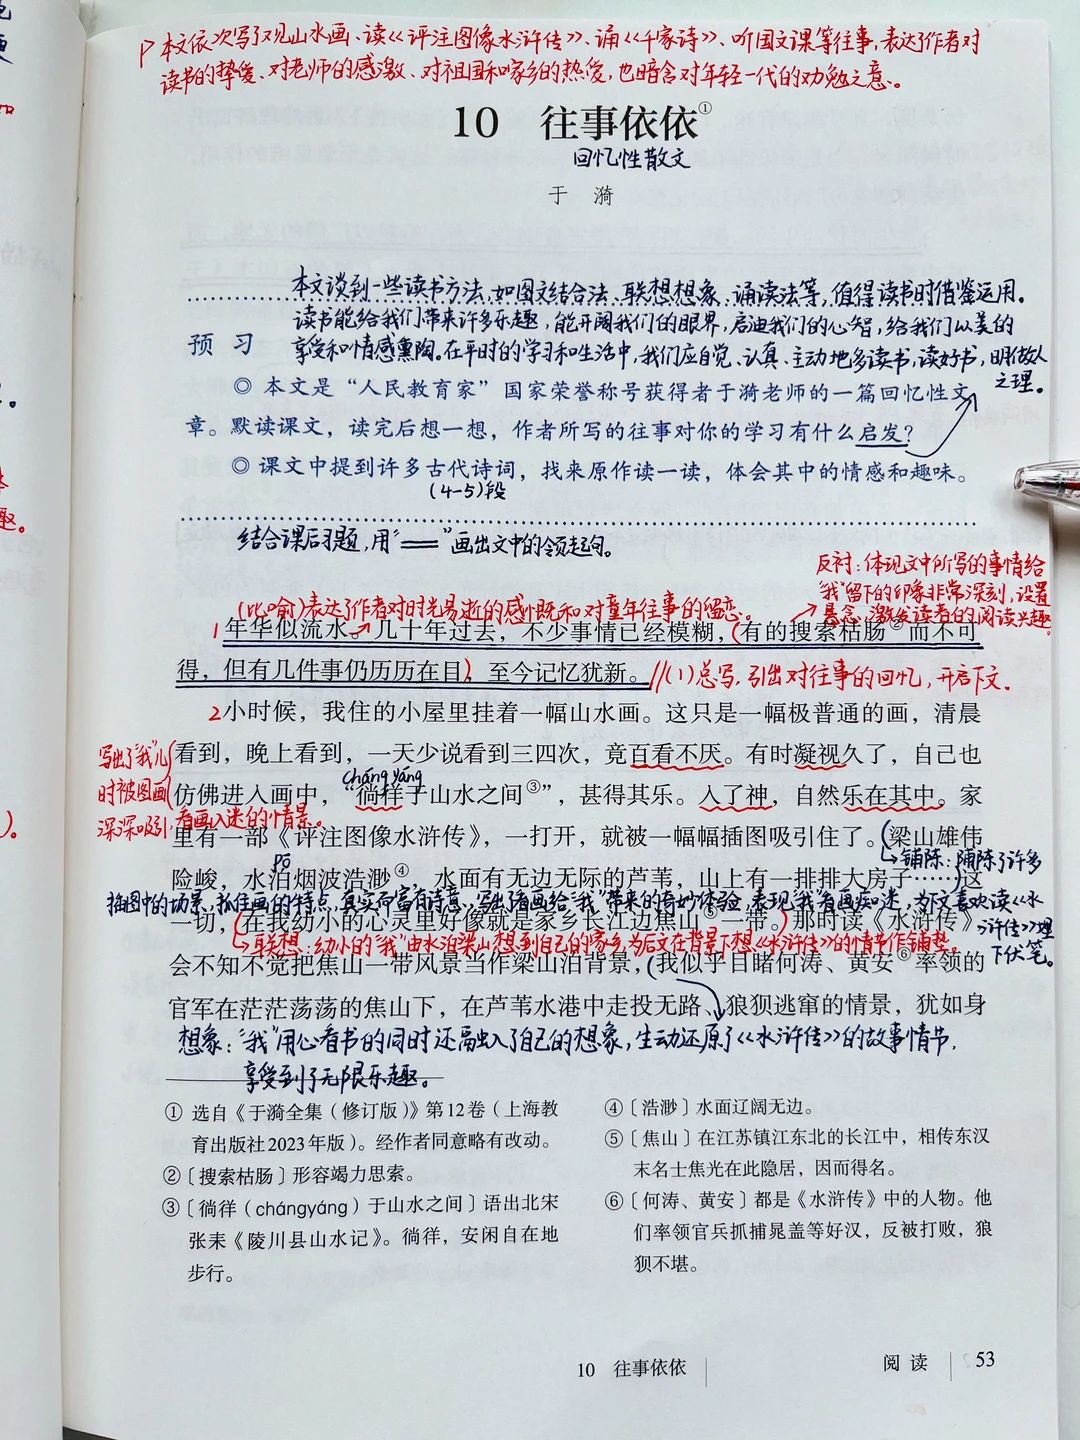 本文依次写了观山水画、读《评注图像水浒传》、诵《千家诗》、听国文课等往事,表达了作者对
读书的挚爱、对老师的感激、对祖国和家乡的热爱,也暗含对年轻一代的劝勉之意。
10 往事依依①
回忆性散文
于漪
本文谈到一些读书方法,如图文结合法、联想想象、诵读法等,值得读书时借鉴运用。
读书能给我们带来许多乐趣,能开阔我们的眼界,启迪我们的心智,给我们以美的
预习
享受和情感熏陶。在平时的学习和生活中,我们应自觉、认真、主动地多读书,读好书,明做人
之理。
◎ 本文是“人民教育家”国家荣誉称号获得者于漪老师的一篇回忆性文
章。默读课文,读完后想一想,作者所写的往事对你的学习有什么启发?
◎ 课文中提到许多古代诗词,找来原作读一读,体会其中的情感和趣味。
(4-5)段
结合课后习题,用“══”画出文中的领起句。
反衬:体现文中所写的事情给
“我”留下的印象非常深刻,设置
悬念,激发读者的阅读兴趣
(比喻)表达了作者对时光易逝的感慨和对童年往事的留恋。
1 年华似流水。几十年过去,不少事情已经模糊,(有的搜索枯肠②而不可
得,但有几件事仍历历在目),至今记忆犹新。//(1)总写,引出对往事的回忆,开启下文.
2 小时候,我住的小屋里挂着一幅山水画。这只是一幅极普通的画,清晨
看到,晚上看到,一天少说看到三四次,竟百看不厌。有时凝视久了,自己也
写出了“我”儿
时被图画
深深吸引,看画入迷的情景。
cháng yáng
仿佛进入画中,“徜徉于山水之间③”,甚得其乐。入了神,自然乐在其中。家
里有一部《评注图像水浒传》,一打开,就被一幅幅插图吸引住了。(梁山雄伟
铺陈:铺陈了许多
pō
险峻,水泊烟波浩渺④,水面有无边无际的芦苇,山上有一排排大房子……)这
插图中的场景,抓住画的特点,真实而富有诗意,写出了看画给“我”带来的奇妙体验,表现“我”看画痴迷,为下文喜欢读《水
浒传》埋
下伏笔。
一切,(在我幼小的心灵里好像就是家乡长江边焦山⑤一带。)那时读《水浒传》
联想:幼小的“我”由水泊梁山想到自己的家乡,为后文在背景下想《水浒传》的情节作铺垫。
会不知不觉把焦山一带风景当作梁山泊背景,(我似乎目睹何涛、黄安⑥率领的
官军在茫茫荡荡的焦山下,在芦苇水港中走投无路、狼狈逃窜的情景,犹如身
想象:“我”用心看书的同时还融入了自己的想象,生动还原了《水浒传》的故事情节,
享受到了无限乐趣。
① 选自《于漪全集(修订版)》第12卷(上海教
育出版社2023年版)。经作者同意略有改动。
②〔搜索枯肠〕形容竭力思索。
③〔徜徉(chángyáng)于山水之间〕语出北宋
张耒《陵川县山水记》。徜徉,安闲自在地
步行。
④〔浩渺〕水面辽阔无边。
⑤〔焦山〕在江苏镇江东北的长江中,相传东汉
末名士焦光在此隐居,因而得名。
⑥〔何涛、黄安〕都是《水浒传》中的人物。他
们率领官兵抓捕晁盖等好汉,反被打败,狼
狈不堪。
10 往事依依
阅读
53